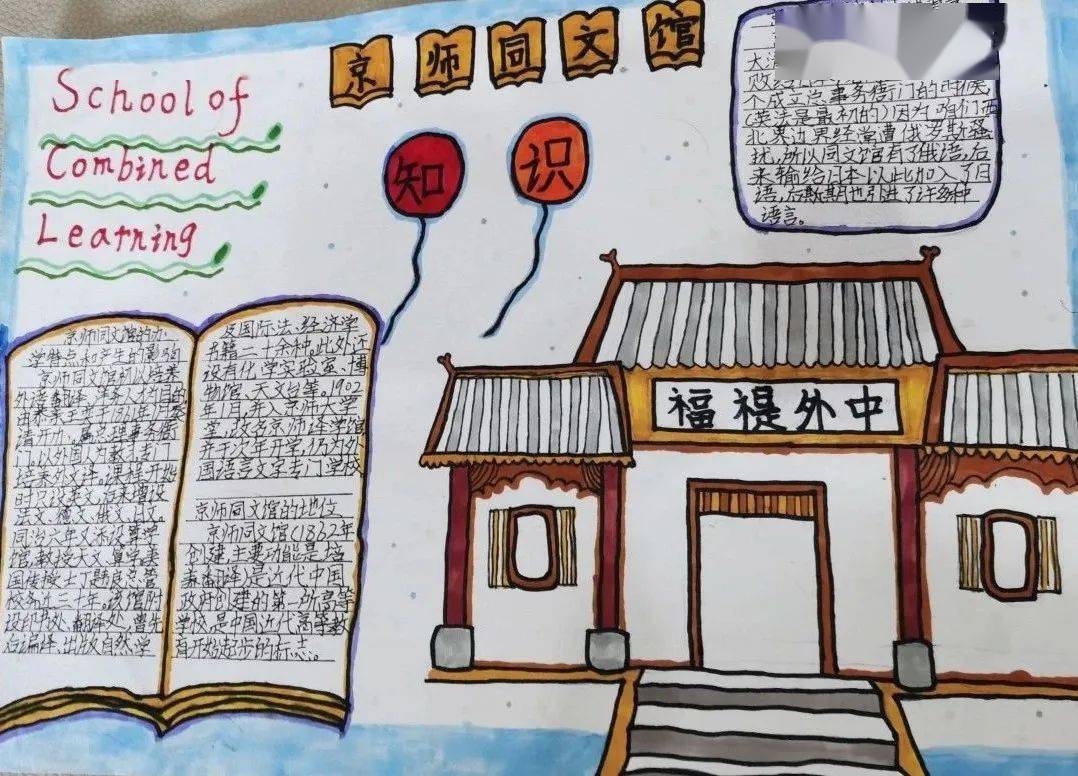 京师同文馆
School of
Combined
Learning
知识
败给
个成立总事务衙门的
(英法是最初的)因为咱们西
北界边界经常遭俄罗斯骚
扰,所以同文馆有了俄语,后
来输给日本以此加入了日
语,后期也引进了许多种
语言。
福禔外中
京师同文馆的办
学特点和产生的影响
京师同文馆初以培养
外语翻译、洋务人才为目的
由恭亲王于1861年1月奏
请开办,属总理事务衙
门。以外国人为教习,专门
培养外文译,课程开始
时只设英文,后来增设
法文、德文、俄文、日文。
同治六年又添设算学
馆,教授天文、算学。美
国传教士丁韪良总管
校务近三十年。该馆附
设印书处、翻译处,曾先
后编译、出版自然学
及国际法、经济学
书籍二十余种。此外还
设有化学实验室、博
物馆、天文台等。1902
年1月,并入京师大学
堂,改名京师译学馆
并于次年开学,仍为外
国语言文字专门学校
京师同文馆的地位
京师同文馆(1862年
创建,主要功能是培
养翻译)是近代中国
政府创建的第一所高等
学校,是中国近代高等教
育开始起步的标志。